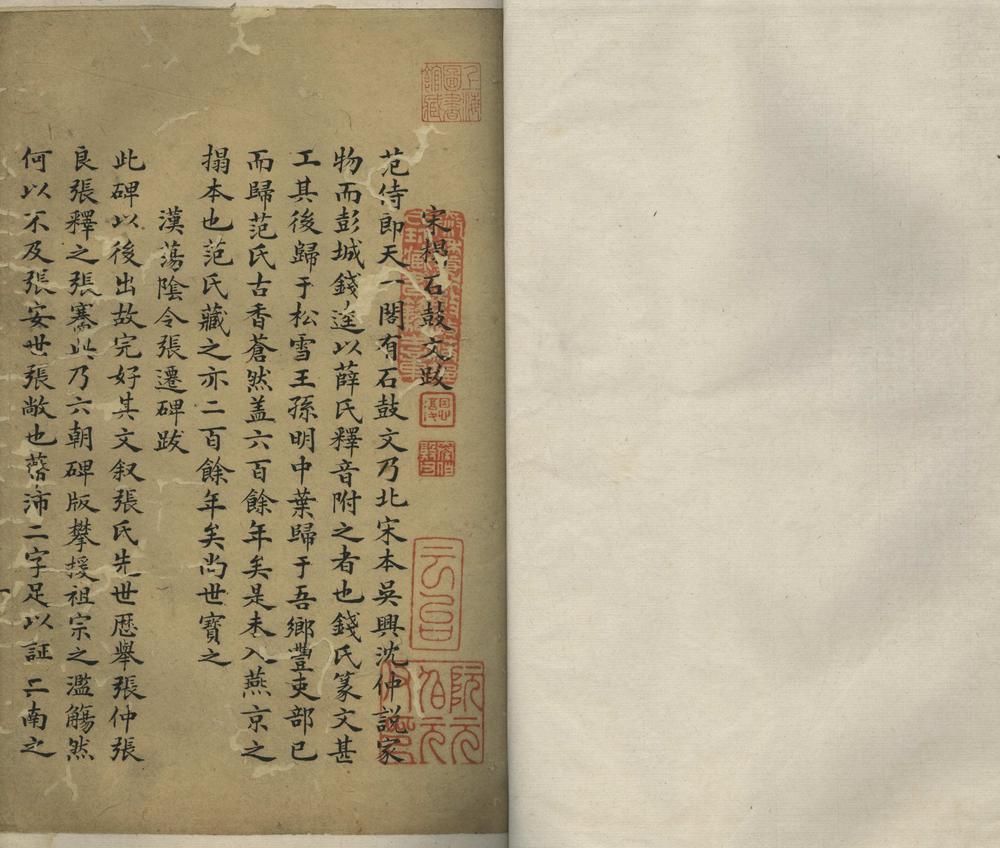 宋搨石鼓文跋
范侍郎天一閣有石鼓文乃北宋本吳興沈仲說家
物而彭城錢逵以薛氏釋音附之者也錢氏篆文甚
工其後歸于松雪王孫明中葉歸于吾鄉豐吏部已
而歸范氏古香蒼然盖六百餘年矣是未入燕京之
搨本也范氏藏之亦二百餘年矣尚世寶之
漢蕩陰令張遷碑跋
此碑以後出故完好其文叙張氏先世歷舉張仲張
良張釋之張騫此乃六朝碑版攀援祖宗之濫觴然
何以不及張安世張敞也蔽沛二字足以証二南之
上海圖書館藏
阮元伯元